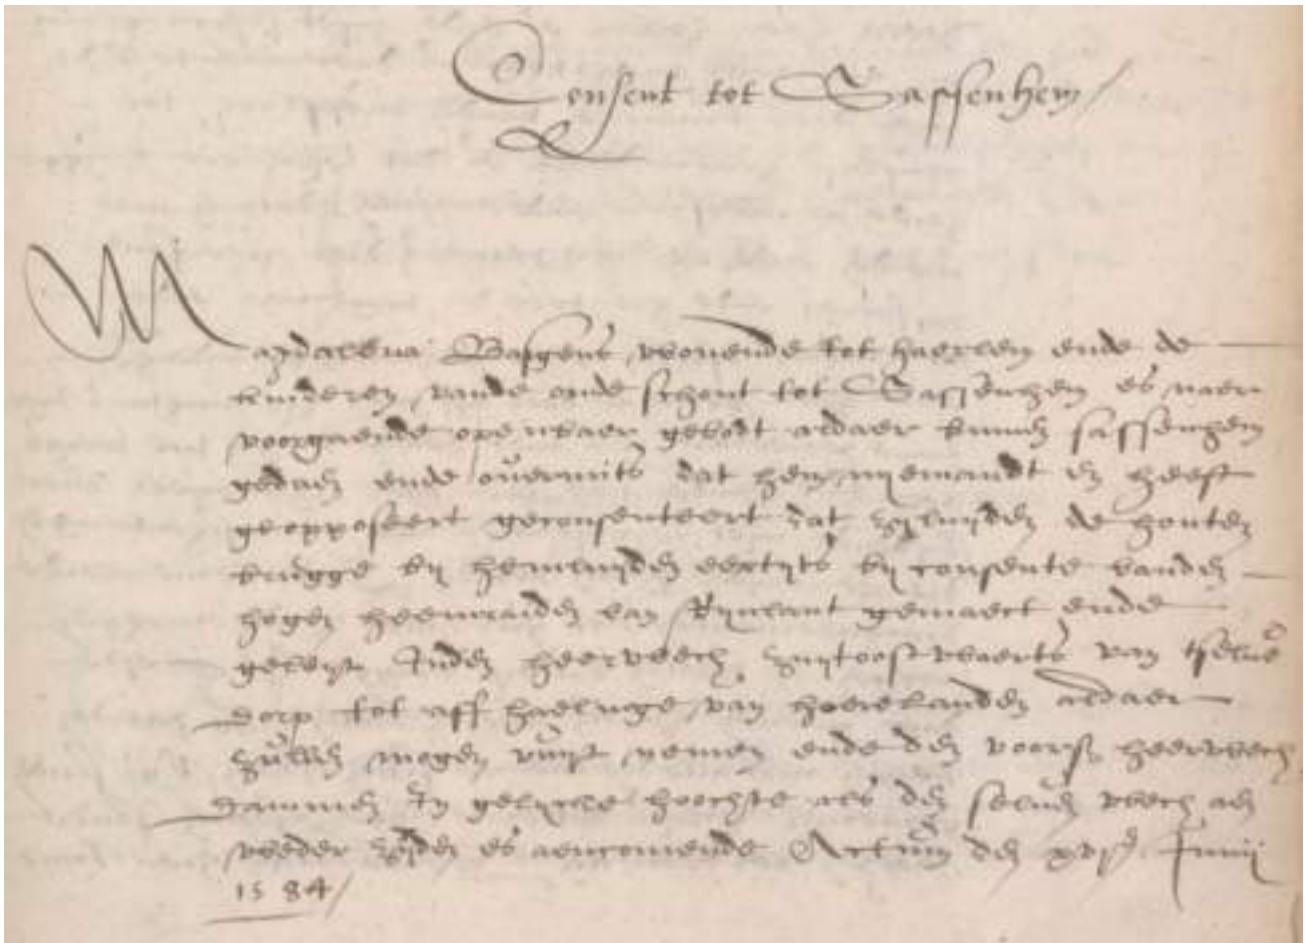 Consent tot Sassenhem
Magdalena wonende tot haerlem ende de
kinderen vande oude schout tot Sassenhem es naer
voorgaende openbaer gebodt aldaer binnen sassenhem
gedaen ende overmits dat hem nyemandt en heeft
geopposeert geconsenteert dat zyluyden de houten
brugge by hemluyden eertyts by consente vanden
hogen heemraiden van Rynlant gemaect ende
geleyt Inden heerwech zuytoostwaerts van tselve
dorp tot aff haelinge van hoere landen aldaer
zullen mogen uuyt nemen ende den voors heerwech
dammen In gelycke hoochte als den selven wech aen
weder zyden es aencomende Actum den Junij
1584